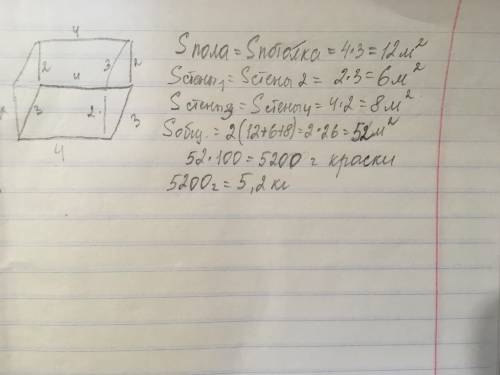 4
2 3 2
4
2 3 2 3
4
S пола = S потолка = 4·3 = 12 м²
S стены1 = S стены 2 = 2·3 = 6 м²
S стены3 = S стены4 = 4·2 = 8 м²
S общ. = 2(12+6+8) = 2·26 = 52 м²
52·100 = 5200 г краски
5200г = 5,2 кг